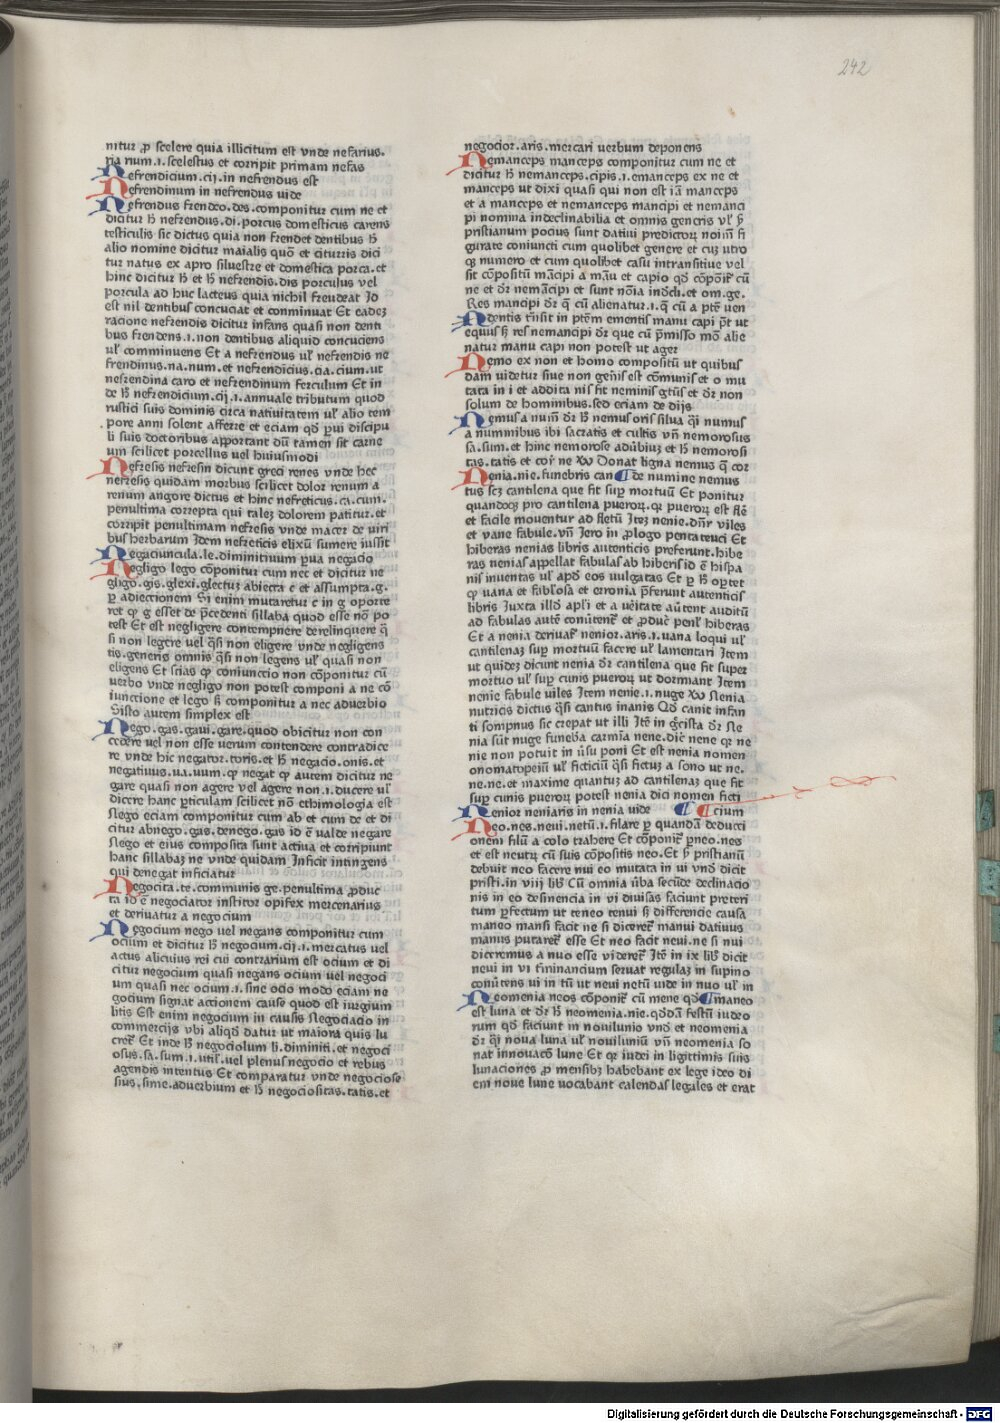 242
nitur ꝓ scelere quia illicitum est vnde nefarius.
ria rium.i.scelestus et corripit primam nefas
Nefrendicium.cij.in nefrendus est
Nefrendinum in nefrendus uide
Nefrendus frendeo.des.componitur cum ne et
dicitur h̄ nefrendus.di.porcus domesticus carens
testiculis sic dictus quia non frendet dentibus h̄
alio nomine dicitur maialis quō et citurris dici
tur natus ex apro siluestre et domestica porca.et
hinc dicitur h̄ et h̄ nefrendis.dis porculus vel
porcula ad huc lacteus quia nichil frendeat Id
est nil dentibus concuciat et conminuat Et eadeȝ
racione nefrendis dicitur infans quasi non denti
bus frendens.i.non dentibus aliquid concuciens
ul' comminuens Et a nefrendus ul' nefrendis ne
frendinus.na.num.et nefrendicius.cia.cium.ut
nefrendina caro et nefrendinum ferculum Et in
de h̄ nefrendicium.cij.i.annuale tributum quod
rustici suis dominis circa natiuitatem ul' alio tem
pore anni solent afferre et eciam qd̄ p̄ui discipu
li suis doctoribus apportant dū tamen sit carne
um scilicet porcellus vel huiusmodi
Nefresis nefresin dicunt greci renes vnde hec
nefresis quidam morbus scilicet dolor renum a
renum angore dictus et hinc nefreticus.ca.cum.
penultima correpta qui taleȝ dolorem patitur.et
corripit penultimam nefresis vnde macer de uiri
bus herbarum Idem nefreticis elixū sumere iussit
Negaciuncula.le.diminitiuum p̄ua negacio
Negligo lego cōponitur cum nec et dicitur ne
gligo.gis.glexi.glectuȝ abiecta c et assumpta.g.
ꝑ adiectionem Si enim mutaretur c in g oporte
ret ꝙ g esset de p̄cedenti sillaba quod esse nō po
test Et est negligere contempnere derelinquere q̄
si non legere vel q̄si non eligere vnde negligens
tis.generis omnis q̄si non legens ul' quasi non
eligens Et scias ꝙ coniunccio non cōponitur cū
uerbo vnde negligo non potest componi a ne cō
iunccione et lego s̄ componitur a nec aduerbio
Sisto autem simplex est
Nego.gas.gaui.gare.quod obicitur non con
cedere vel non esse uerum contendere contradice
re vnde hic negator.toris.et h̄ negacio.onis.et
negatiuus.ua.uum.ꝙ negat ꝙ autem dicitur ne
gare quasi non agere vel agere non.i.ducere ul'
dicere hanc ꝑticulam scilicet nō ethimologia est
Nego eciam componitur cum ab et cum de et di
citur abnego.gas.denego.gas id ē ualde negare
Nego et eius composita sunt actiua et corripiunt
hanc sillabaȝ ne vnde quidam Inficit intingens
qui denegat inficiatur
Negocita.te.communis ge.penultima ꝓduc
ta id ē negociator institor opifex mercenarius
et deriuatur a negocium
Negocium nego uel negans componitur cum
ocium et dicitur h̄ negocium.cij.i.mercatus uel
actus alicuius rei cui contrarium est ocium et di
citur negocium quasi negans ocium uel negoci
um quasi nec ocium.i.sine ocio modo eciam ne
gocium signat accionem cause quod est iurgium
litis Est enim negocium in causis Negociacio in
commercijs vbi aliqd̄ datur ut maiora quis lu
cret̄ Et inde h̄ negociolum li.diminiti.et negoci
osus.sa.sum.i.util'.uel plenus negocio et rebus
agendis intentus Et comparatur vnde negociose
sius.sime.aduerbium et h̄ negociositas.tatis.et
negocior.aris.mercari uerbum deponens
Nemanceps manceps componitur cum ne et
dicitur h̄ nemanceps.cipis.i.emanceps ex ne et
manceps ut dixi quasi qui non est iā manceps
et a manceps et nemanceps mancipi et nemanci
pi nomina indeclinabilia et omnis generis ul' s̄
pristianum pocius sunt datiui predictorȝ noīm fi
gurate coniuncti cum quolibet genere et cuȝ utro
qȝ numero et cum quolibet casu intransitiue vel
sit cōpositū mācipi a māu et capio qd̄ cōponit̄ cū
ne et dr̄ nemācipi et sunt nōia indcl'i.et om.ge.
Res mancipi dr̄ q̄ cū alienatur.i.q̄ cū a ptē uen
dentis trā̄sit in ptēm ementis manu capi pt̄ ut
equus s̄ res nemancipi dr̄ que cū p̄misso mō alie
natur manu capi non potest ut ager
Nemo ex non et homo compositū ut quibus
dam uidetur siue non gen̄is est cōmunis et o mu
tata in i et addita nis fit neminis gtūs et dr̄ non
solum de hominibus.sed eciam de dijs
Nemus a num̄ dr̄ h̄ nemus oris silua q̄i numus
a numinibus ibi sacratis et cultis vn̄ nemorosus
sa.sum.et hinc nemorose adūbiuȝ et h̄ nemorosi
tas.tatis et cor̄ ne xv Donat ligna nemus q̄ cor
Nenia.nie.funebris can ¶ de numine nemus
tus scȝ cantilena que fit suꝑ mortuū Et ponitur
quandoqȝ pro cantilena puerorȝ.qȝ puerorȝ est flē
et facile mouentur ad fletū Iteȝ nenie.dn̄r viles
et vane fabule.vn̄ Iero in ꝓlogo pentateuci Et
hiberas nenias libris autenticis preferunt.hibe
ras nenias appellat fabulas ab hiberis id ē hispa
nis inuentas ul' apd̄ eos uulgatas Et ꝑ h̄ oꝑtet
ꝙ uana et fabl'osa et erronia p̄ferunt autenticis
libris Iuxta illd̄ apl'i et a ueitate aūtent auditū
ad fabulas autē conūtent̄ et ꝓduc̄ penl' hiberas
Et a nenia deriuat̄ nenior.aris.i.uana loqui ul'
cantilenaȝ suꝑ mortuū facere ul' lamentari Item
ut quideȝ dicunt nenia dr̄ cantilena que fit super
mortuo ul' suꝑ cunis puerorȝ ut dormiant Item
nenie fabule uiles Item nenie.i.nuge xv Nenia
nutricis dictus q̄si cantus inanis Qd̄ canit infan
ti sompnus sic crepat ut illi Itē in grecista dr̄ Ne
nia sūt nuge funeb̄a carmīa nene.dic̄ nene qȝ ne
nie non potuit in ūsu poni Et est nenia nomen
onomatopeiū ul' ficticiū q̄si fictuȝ a sono ut ne.
ne.ne.et maxime quantuȝ ad cantilenaȝ que fit
suꝑ cunis puerorȝ potest nenia dici nomen ficti
Nenior neniaris in nenia uide ¶ ¶ cium
Neo.nes.neui.netū.i.filare ꝑ quandā deducci
onem filū a colo trahere Et cōponit̄ ꝑneo.nes
et est neutrȝ cū suis cōpositis neo.Et s̄ pristianū
debuit neo facere nui eo mutata in ui vnd̄ dicit
pristi.in viij lib̄ Cū omnia ūba secūde declinacio
nis in eo desinencia in vi diuisas faciunt preteri
tum ꝑfectum ut teneo tenui s̄ differencie causa
maneo mansi facit ne si diceret̄ manui datiuus
manus putaret̄ esse Et neo facit neui.ne si nui
diceremus a nuo esse videret̄ Itē in ix lib̄ dicit
neui in vi tmīnancium seruat regulaȝ in supino
conūtens ui in tū ut neui netū uide in nuo ul' in
Neomenia neos cōponit̄ cū mene qd̄ ¶ maneo
est luna et dr̄ h̄ neomenia.nie.qd̄dā festū iudeo
rum qd̄ faciunt in nouilunio vnd̄ et neomenia
dr̄ q̄i noua luna ul' nouiluniū vn̄ neomenia so
nat innouacō lune Et qȝ iudei in ligittimis suis
lunaciones ꝓ mensibȝ habebant ex lege ideo di
em noue lune uocabant calendas legales et erat
Digitalisierung gefördert durch die Deutsche Forschungsgemeinschaft - DFG